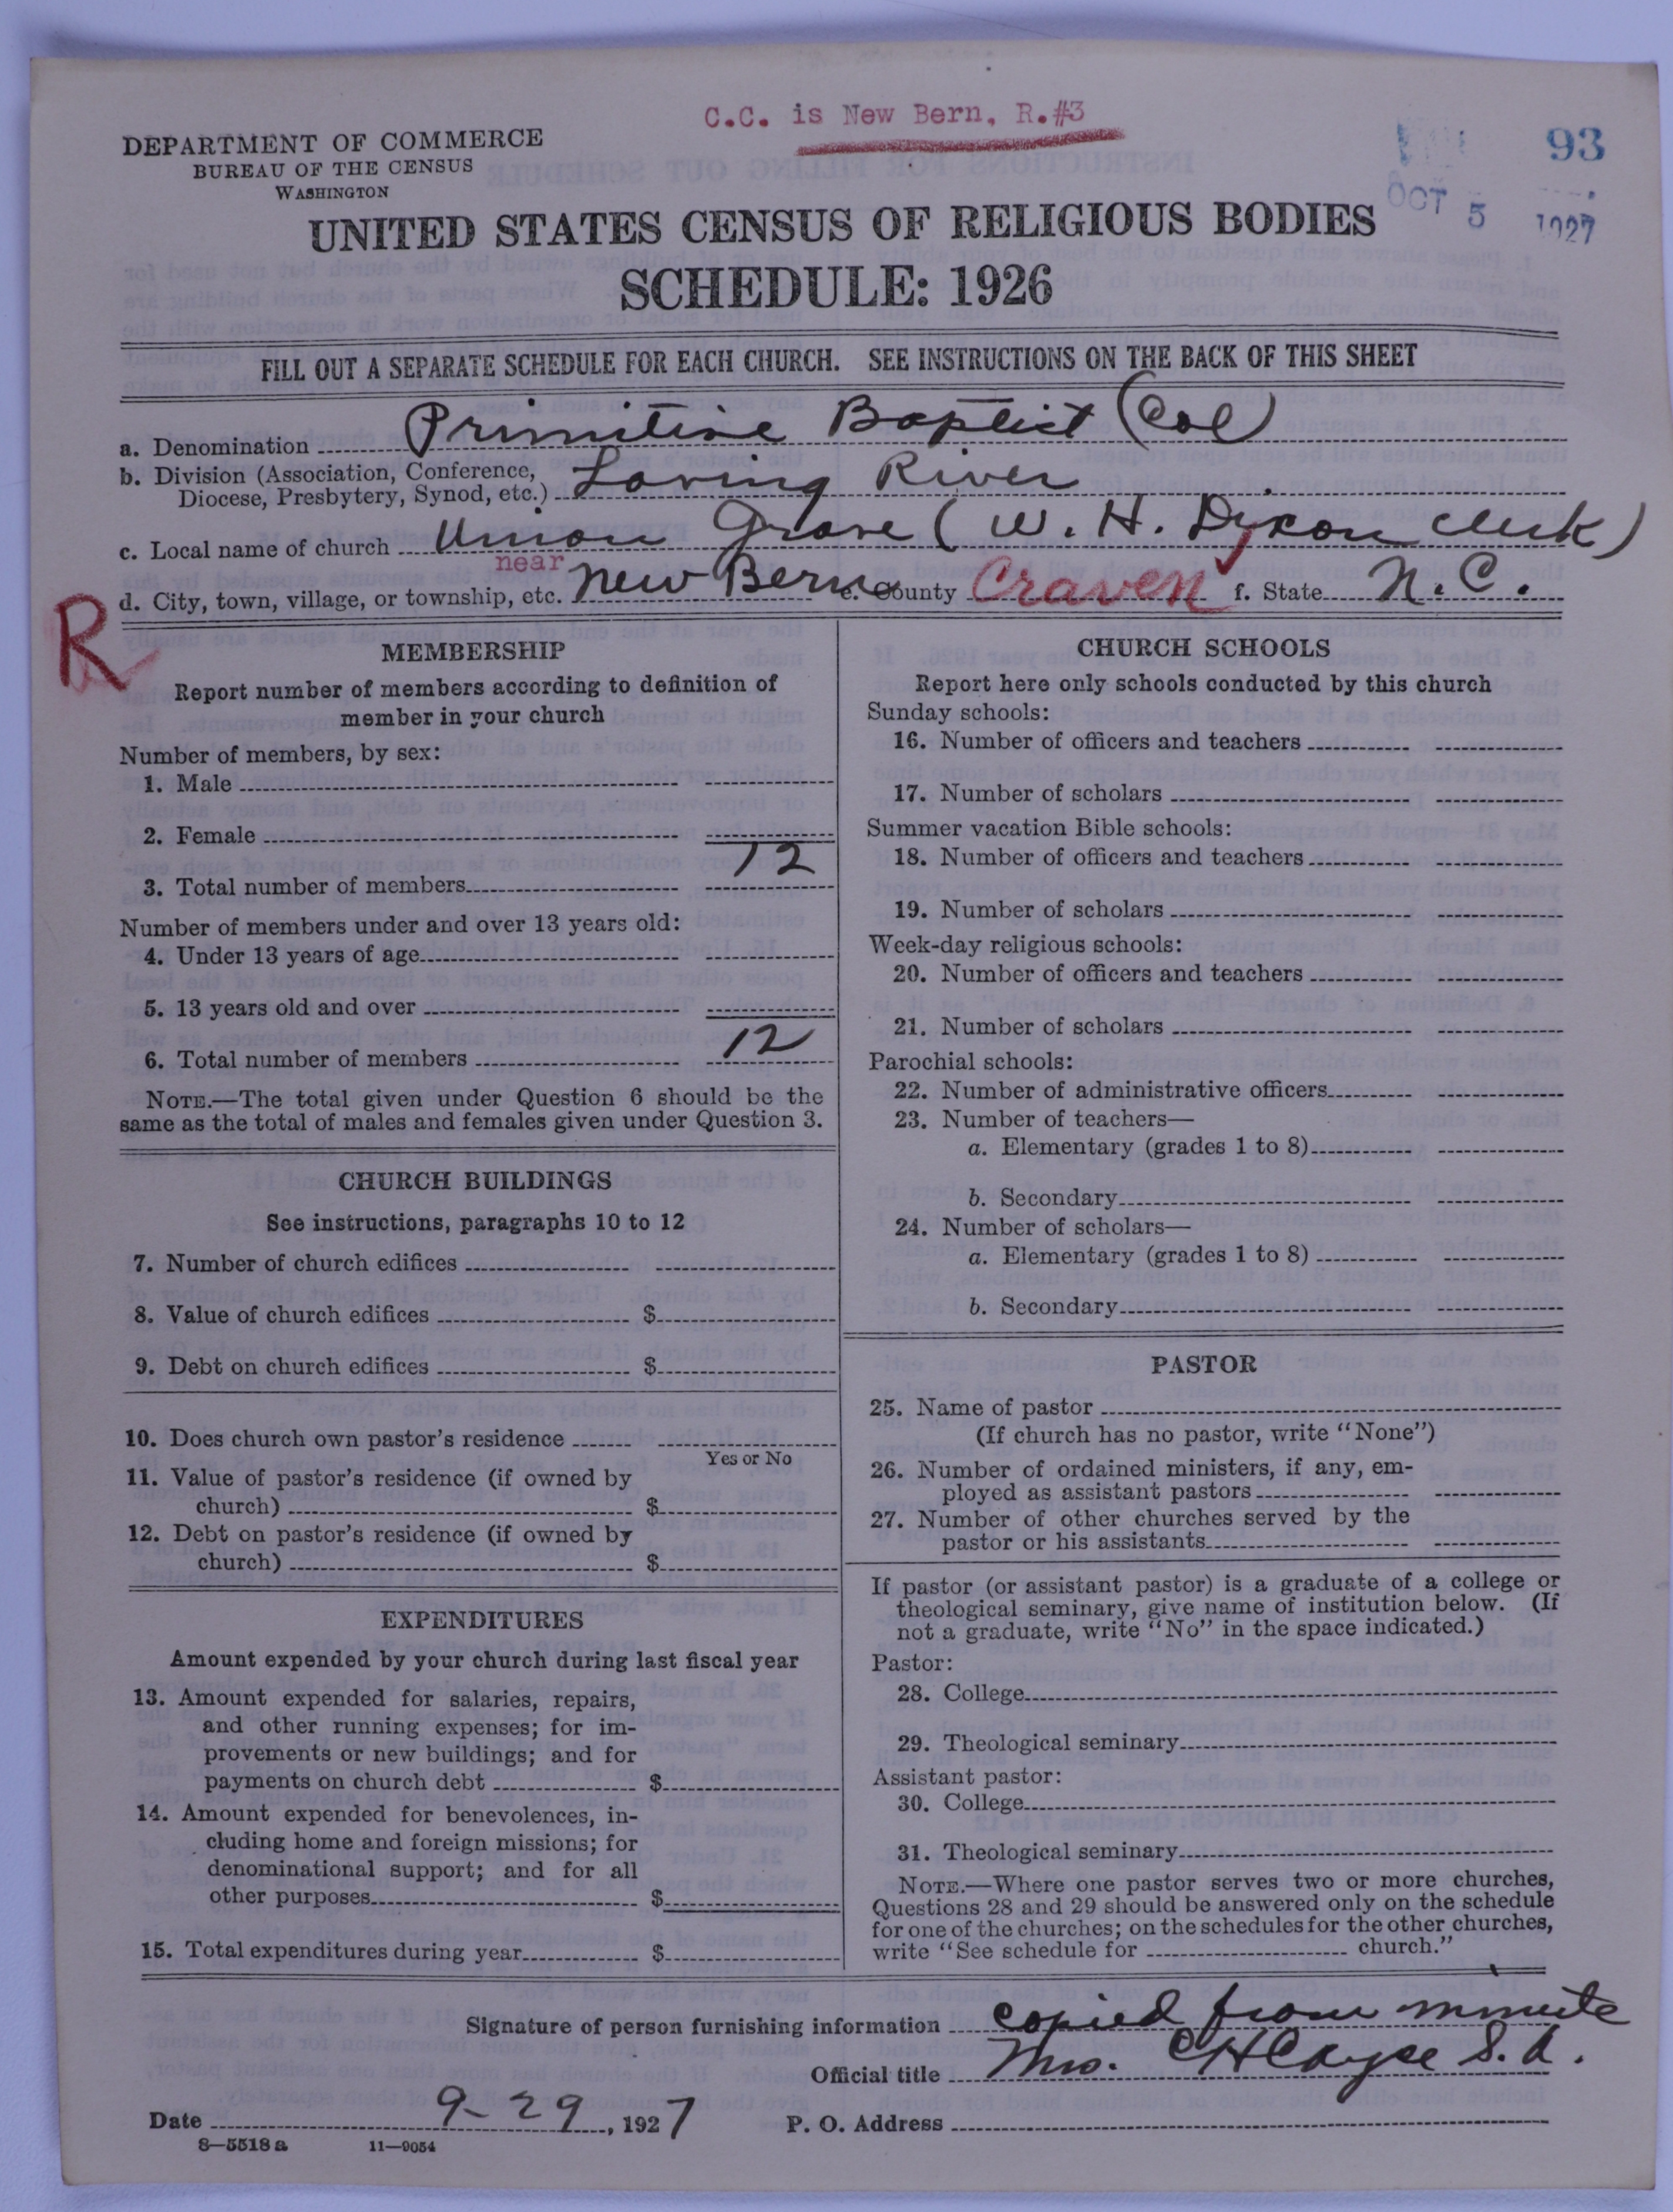 C.C. is New Bern, R.#3
DEPARTMENT OF COMMERCE
BUREAU OF THE CENSUS
WASHINGTON
93
OCT 5 1927
UNITED STATES CENSUS OF RELIGIOUS BODIES
SCHEDULE: 1926
FILL OUT A SEPARATE SCHEDULE FOR EACH CHURCH. SEE INSTRUCTIONS ON THE BACK OF THIS SHEET
a. Denomination Primitive Baptist (Col)
b. Division (Association, Conference, Diocese, Presbytery, Synod, etc.) Loving River
c. Local name of church Union Grove (W. H. Dixon Clerk)
d. City, town, village, or township, etc. near New Bern e. County Craven f. State N. C.
R
MEMBERSHIP
Report number of members according to definition of
member in your church
Number of members, by sex:
1. Male
2. Female
3. Total number of members 12
Number of members under and over 13 years old:
4. Under 13 years of age
5. 13 years old and over
6. Total number of members 12
NOTE.—The total given under Question 6 should be the
same as the total of males and females given under Question 3.
CHURCH BUILDINGS
See instructions, paragraphs 10 to 12
7. Number of church edifices
8. Value of church edifices $
9. Debt on church edifices $
10. Does church own pastor's residence
Yes or No
11. Value of pastor's residence (if owned by
church) $
12. Debt on pastor's residence (if owned by
church) $
EXPENDITURES
Amount expended by your church during last fiscal year
13. Amount expended for salaries, repairs,
and other running expenses; for im-
provements or new buildings; and for
payments on church debt $
14. Amount expended for benevolences, in-
cluding home and foreign missions; for
denominational support; and for all
other purposes $
15. Total expenditures during year $
CHURCH SCHOOLS
Report here only schools conducted by this church
Sunday schools:
16. Number of officers and teachers
17. Number of scholars
Summer vacation Bible schools:
18. Number of officers and teachers
19. Number of scholars
Week-day religious schools:
20. Number of officers and teachers
21. Number of scholars
Parochial schools:
22. Number of administrative officers
23. Number of teachers—
a. Elementary (grades 1 to 8)
b. Secondary
24. Number of scholars—
a. Elementary (grades 1 to 8)
b. Secondary
PASTOR
25. Name of pastor
(If church has no pastor, write "None")
26. Number of ordained ministers, if any, em-
ployed as assistant pastors
27. Number of other churches served by the
pastor or his assistants
If pastor (or assistant pastor) is a graduate of a college or
theological seminary, give name of institution below. (If
not a graduate, write "No" in the space indicated.)
Pastor:
28. College
29. Theological seminary
Assistant pastor:
30. College
31. Theological seminary
NOTE.—Where one pastor serves two or more churches,
Questions 28 and 29 should be answered only on the schedule
for one of the churches; on the schedules for the other churches,
write "See schedule for church."
Signature of person furnishing information copied from minute
Official title Mrs. C H Cayce S. A.
Date 9-29, 1927 P. O. Address
8—5518 a 11—9054